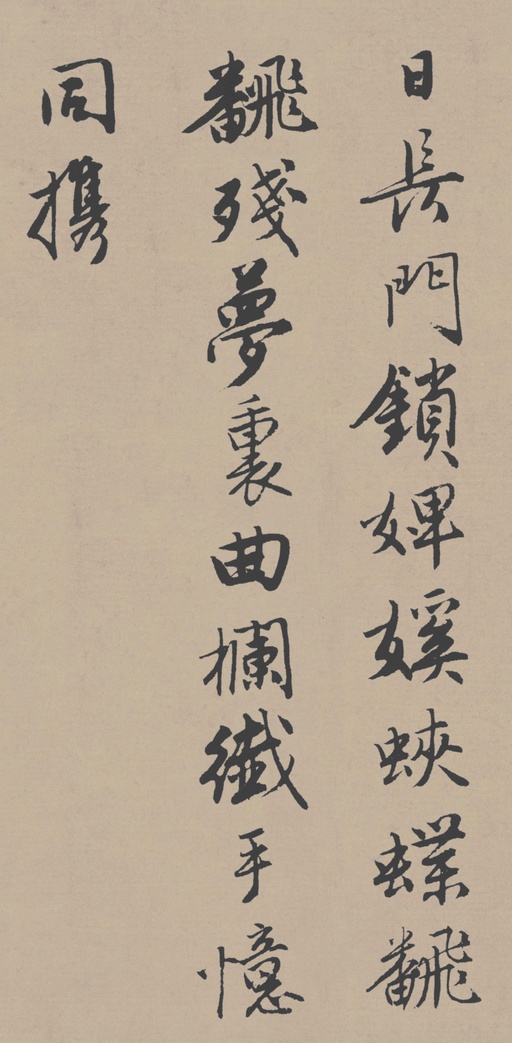 日長門鎖婢㜎蛺蝶飜
飜殘夢裏曲欄纖手憶
同携